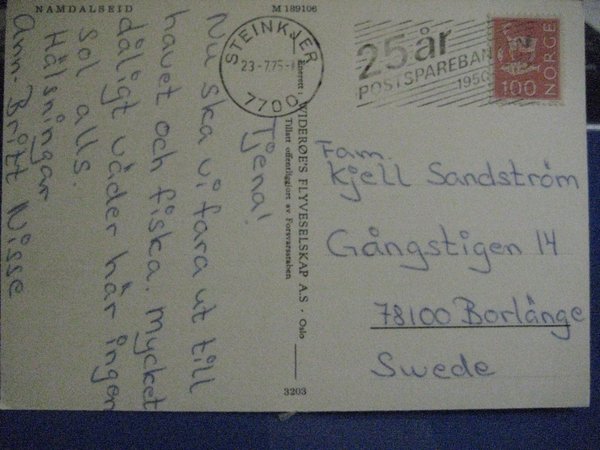 NAMDALSEID
M 189106
Tjena!
Nu ska vi fara ut till
havet och fiska. mycket
dåligt väder här ingen
sol alls.
Hälsningar
Ann-Britt Nisse
Enerett: WIDERØE'S FLYVESELSKAP A.S · Oslo
Tillatt offentliggjort av Forsvarsstaben
3203
STEINKJER
23-7.75-
7700
25 år
POSTSPAREBAN
1950
NORGE
100
Fam.
Kjell Sandström
Gångstigen 14
78100 Borlänge
Swede